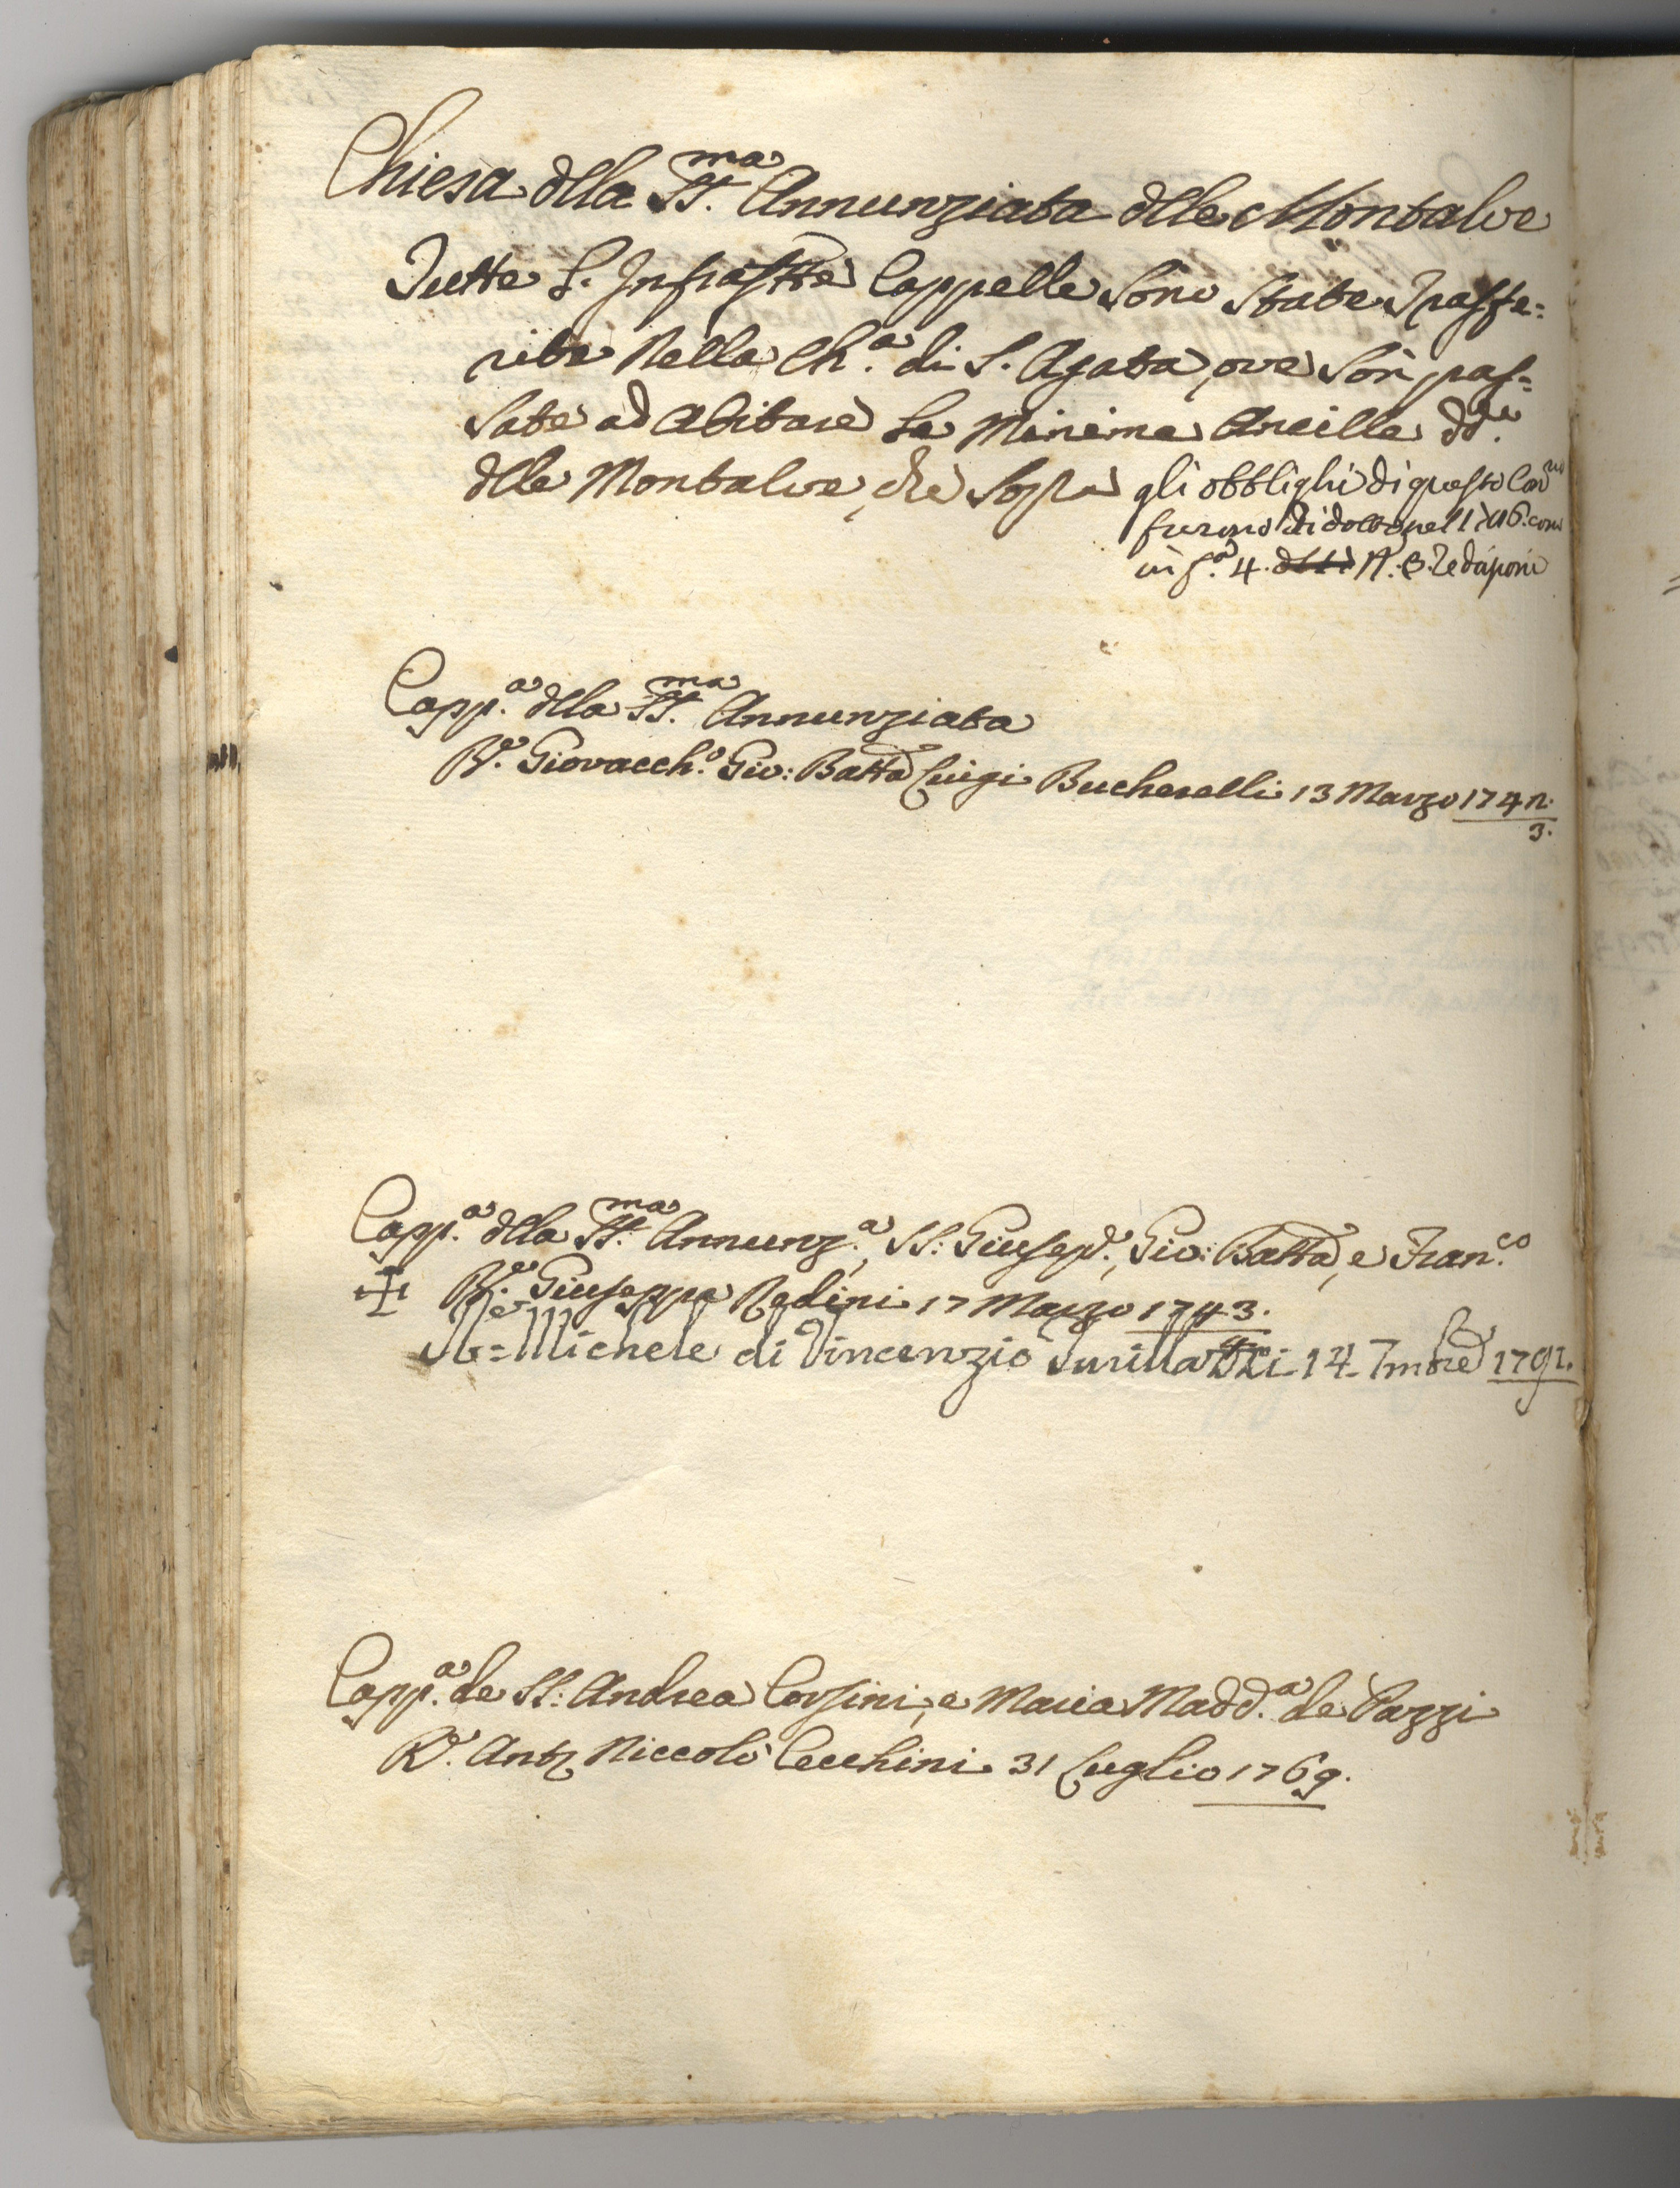 Chiesa dlla SS.ma Annunziata dlle Montalve
Tutte L. Infrastte Cappelle Sono State Trasfe=
rite Nella Ch.a di S. Agata, ove Son pas=
sate ad Abitare Le Minime Ancille dd.e
dlle Montalve, che Sopra
gli obblighi di questo Con.to
furono Ridotti nel
in f.a 4. N. Redizioni
Capp.a dlla SS.ma Annunziata
R.e Giovacch.o Gio: Batta Luigi Bucherelli 13 Marzo 1742.
3.
Capp.a dlla SS.ma Annunz.a, SS: Giusep.e, Gio: Batta, e Fran.co
R.e Giuseppe Redini 17 Marzo 1743.
4.
Michele di Vincenzio li 14 7mbre 1791.
Capp.a de SS: Andrea Corsini, e Maria Madd.a de Pazzi
R.e Anto Niccolò Cecchini 31 Luglio 1769.